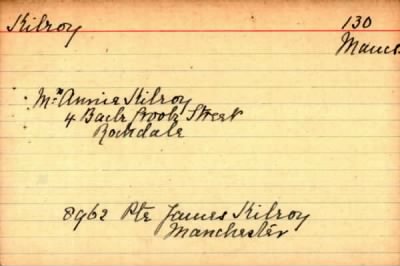 Kilroy 130
Manc
Mrs Annie Kilroy
4 Back Street
Rochdale
8962 Pte James Kilroy
Manchester